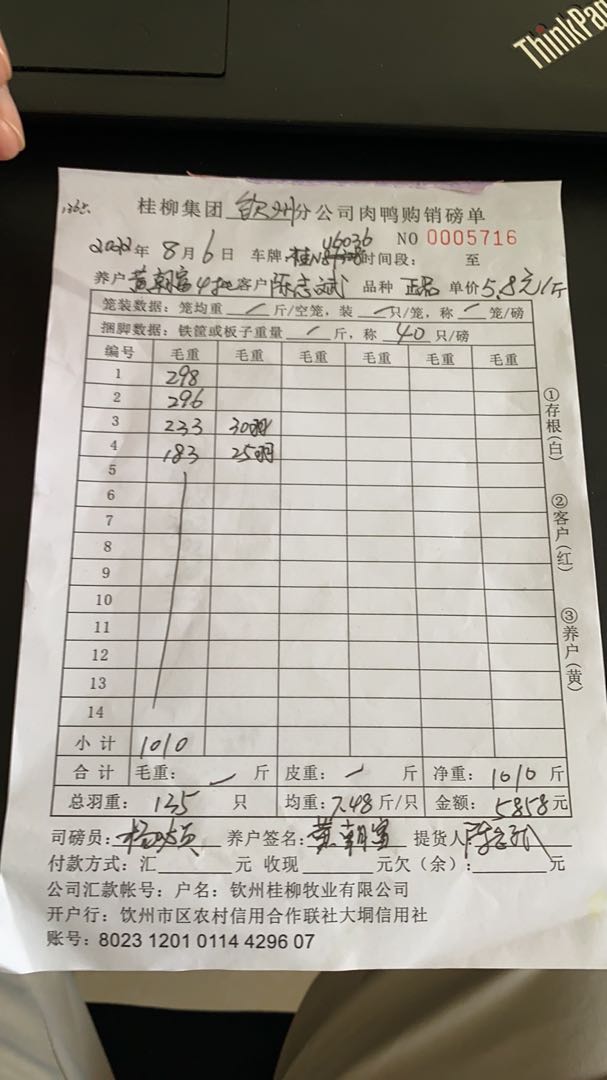 ThinkPad
1365
桂柳集团 钦州 分公司肉鸭购销磅单
U6036
NO 0005716
2022年 8月6日 车牌:桂N 时间段: 至
养户 黄朝富4批 客户 陈志斌 品种 正品 单价5.8元/斤
笼装数据:笼均重 / 斤/空笼,装 / 只/笼,称 / 笼/磅
捆脚数据:铁筐或板子重量 / 斤,称 40 只/磅
编号 毛重 毛重 毛重 毛重 毛重 毛重
1 298
2 296
3 233 30羽
4 183 25羽
5
6
7
8
9
10
11
12
13
14
小计 1010
合计 毛重: / 斤 皮重: / 斤 净重: 1010 斤
总羽重: 135 只 均重: 7.48 斤/只 金额: 5858 元
①存根(白)
②客户(红)
③养户(黄)
司磅员: 养户签名: 黄朝富 提货人
付款方式:汇 元 收现 元欠(余): 元
公司汇款帐号:户名:钦州桂柳牧业有限公司
开户行:钦州市区农村信用合作联社大垌信用社
账号:8023 1201 0114 4296 07